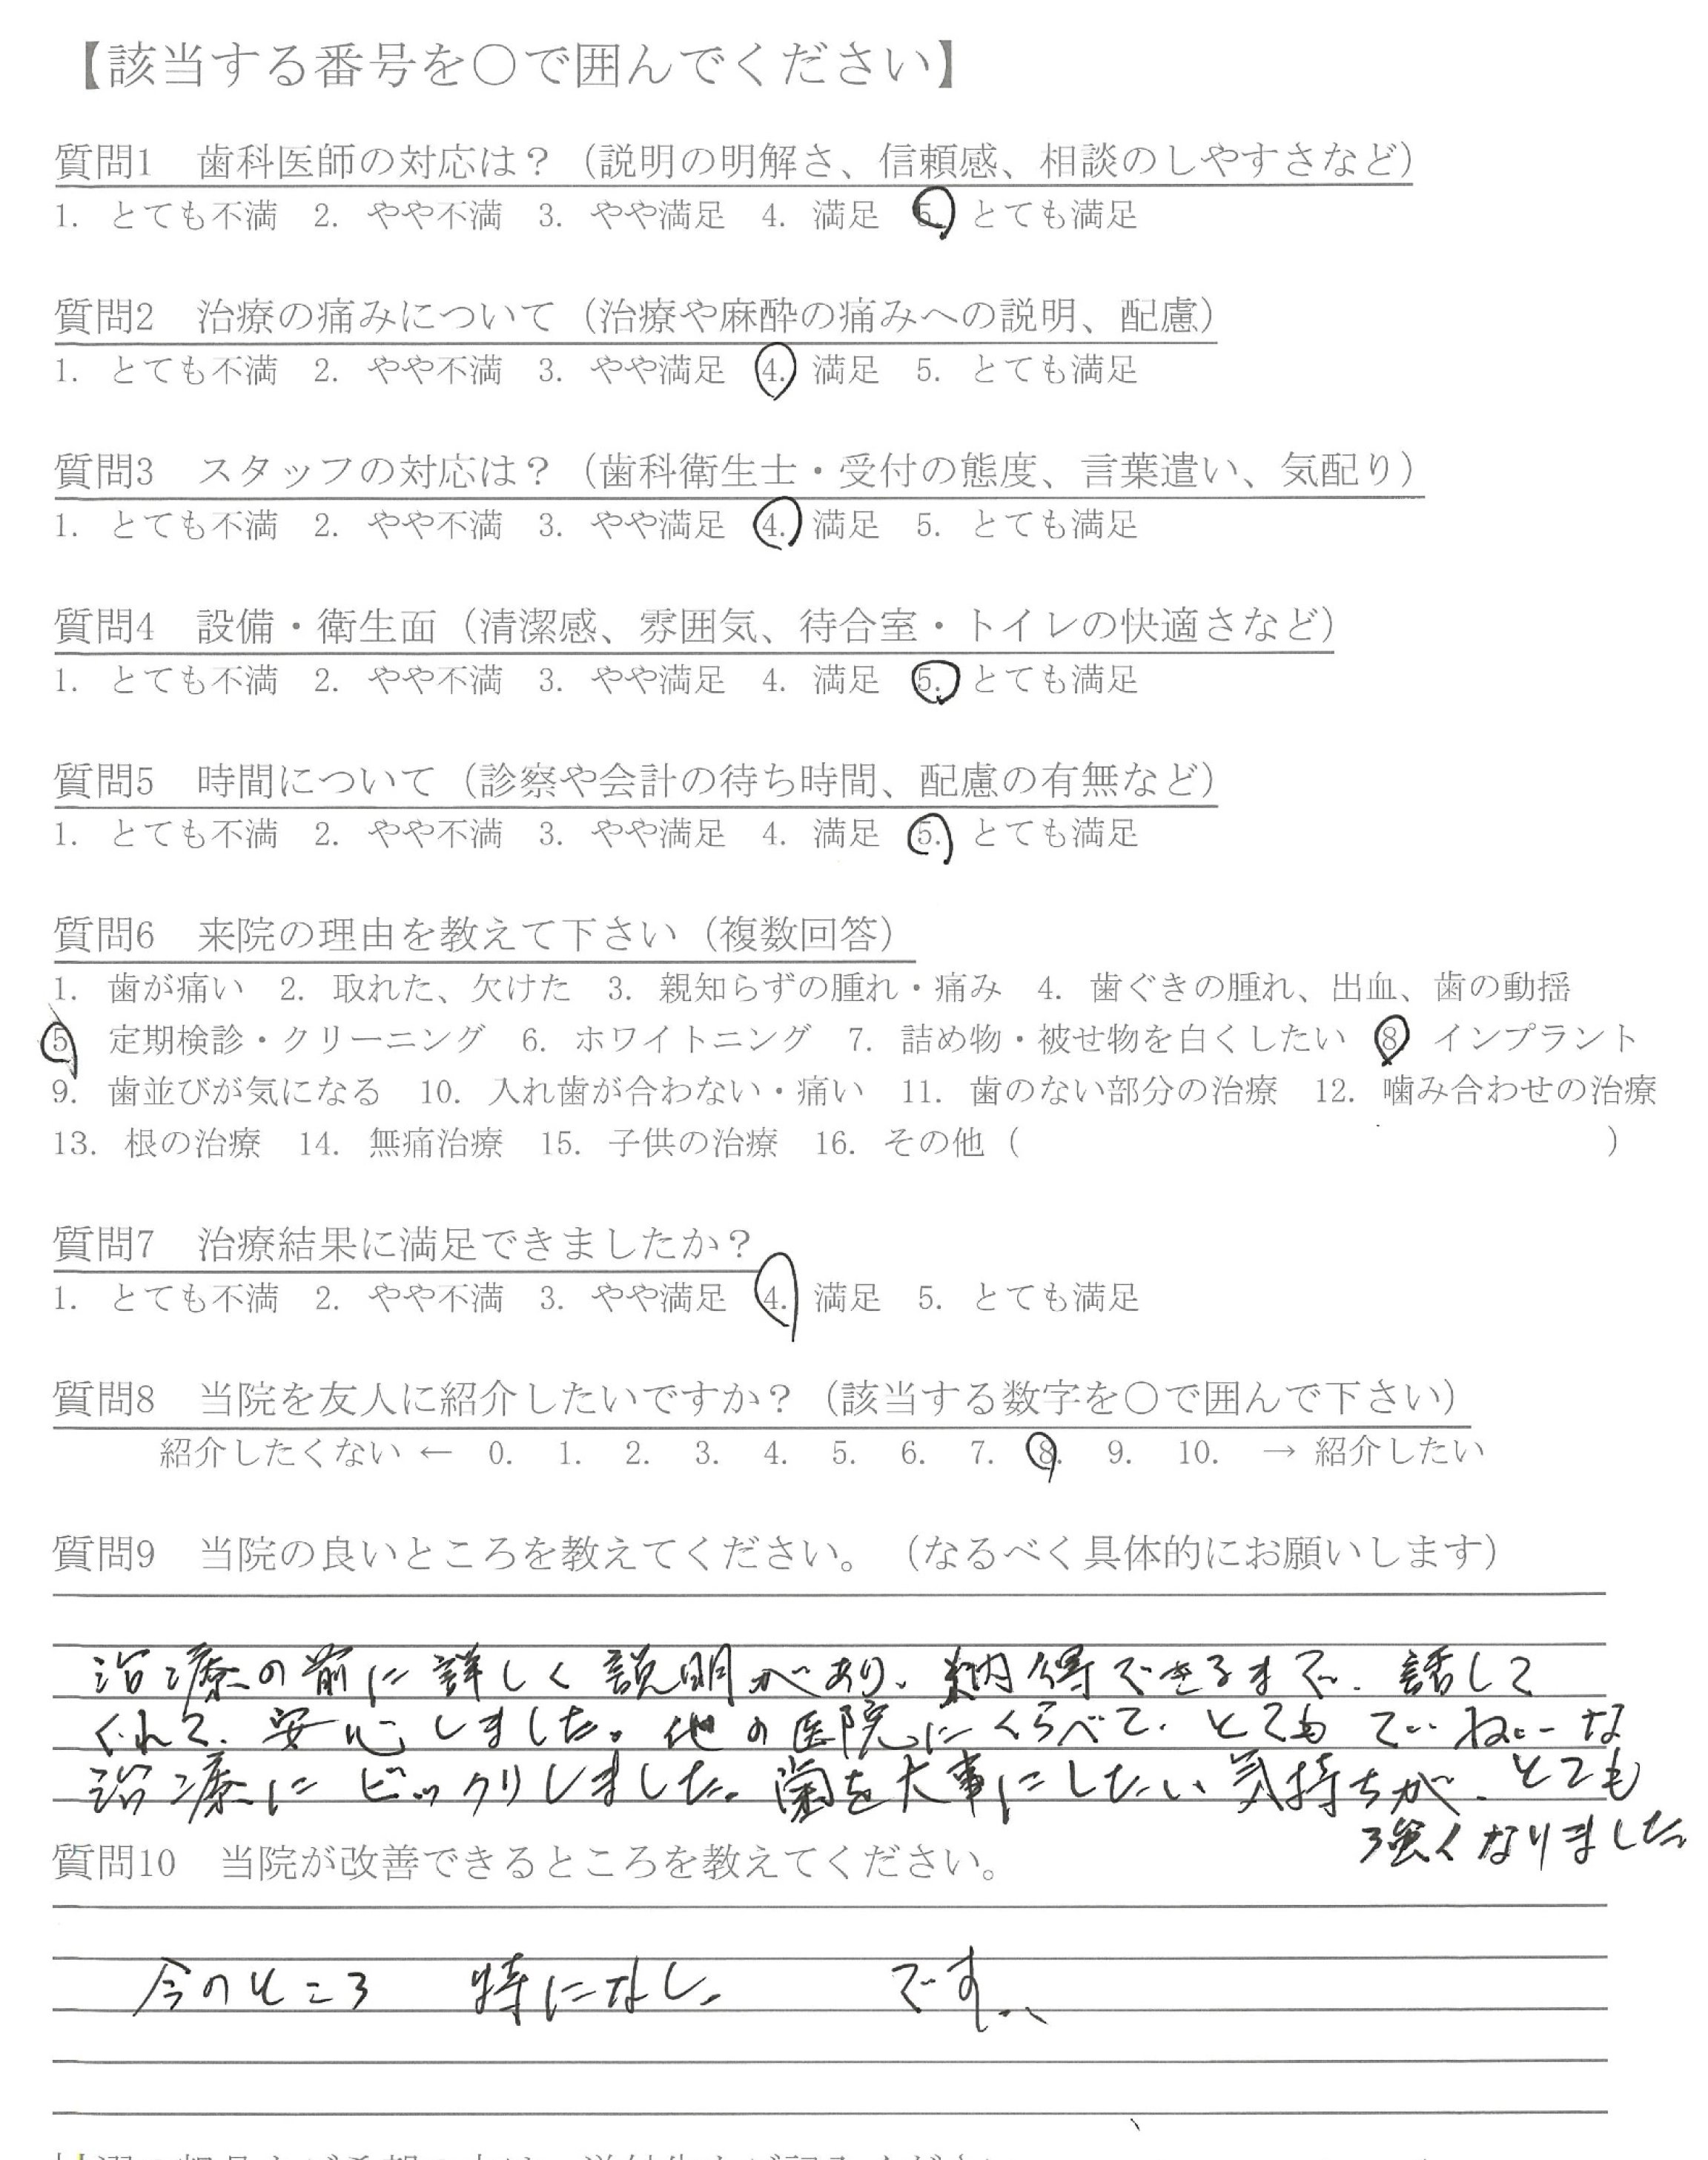 【該当する番号を○で囲んでください】
質問1 歯科医師の対応は？（説明の明解さ、信頼感、相談のしやすさなど）
1. とても不満 2. やや不満 3. やや満足 4. 満足 5. とても満足
質問2 治療の痛みについて（治療や麻酔の痛みへの説明、配慮）
1. とても不満 2. やや不満 3. やや満足 4. 満足 5. とても満足
質問3 スタッフの対応は？（歯科衛生士・受付の態度、言葉遣い、気配り）
1. とても不満 2. やや不満 3. やや満足 4. 満足 5. とても満足
質問4 設備・衛生面（清潔感、雰囲気、待合室・トイレの快適さなど）
1. とても不満 2. やや不満 3. やや満足 4. 満足 5. とても満足
質問5 時間について（診察や会計の待ち時間、配慮の有無など）
1. とても不満 2. やや不満 3. やや満足 4. 満足 5. とても満足
質問6 来院の理由を教えて下さい（複数回答）
1. 歯が痛い 2. 取れた、欠けた 3. 親知らずの腫れ・痛み 4. 歯ぐきの腫れ、出血、歯の動揺
5 定期検診・クリーニング 6. ホワイトニング 7. 詰め物・被せ物を白くしたい 8 インプラント
9. 歯並びが気になる 10. 入れ歯が合わない・痛い 11. 歯のない部分の治療 12. 噛み合わせの治療
13. 根の治療 14. 無痛治療 15. 子供の治療 16. その他（ ）
質問7 治療結果に満足できましたか？
1. とても不満 2. やや不満 3. やや満足 4. 満足 5. とても満足
質問8 当院を友人に紹介したいですか？（該当する数字を○で囲んで下さい）
紹介したくない ← 0. 1. 2. 3. 4. 5. 6. 7. 8. 9. 10. → 紹介したい
質問9 当院の良いところを教えてください。（なるべく具体的にお願いします）
治療の前に詳しく説明があり、納得できるまで、話して
くれて、安心しました。他の医院にくらべて、とても ていねいな
治療に ビックリしました。歯を大事にしたい気持ちが、とても
強くなりました。
質問10 当院が改善できるところを教えてください。
今のところ 特になし。 です…